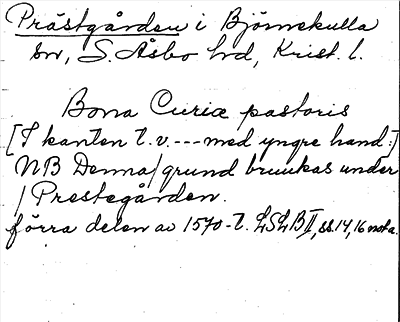 Prästgården i Björnekulla
sn, S. Åsbo hd, Krist. l.
Bona Curiæ pastoris
[I kanten t. v. --- med yngre hand:]
NB Denna/grund bruukas under
/Prestegården.
förra delen av 1570-t. LSLB II, ss. 14, 16 nota.